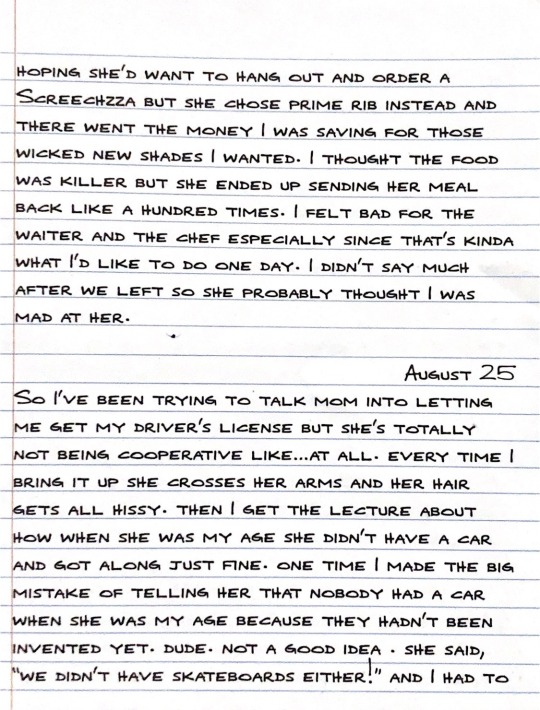 HOPING SHE'D WANT TO HANG OUT AND ORDER A
SCREECHZZA BUT SHE CHOSE PRIME RIB INSTEAD AND
THERE WENT THE MONEY I WAS SAVING FOR THOSE
WICKED NEW SHADES I WANTED. I THOUGHT THE FOOD
WAS KILLER BUT SHE ENDED UP SENDING HER MEAL
BACK LIKE A HUNDRED TIMES. I FELT BAD FOR THE
WAITER AND THE CHEF ESPECIALLY SINCE THAT'S KINDA
WHAT I'D LIKE TO DO ONE DAY. I DIDN'T SAY MUCH
AFTER WE LEFT SO SHE PROBABLY THOUGHT I WAS
MAD AT HER.
AUGUST 25
SO I'VE BEEN TRYING TO TALK MOM INTO LETTING
ME GET MY DRIVER'S LICENSE BUT SHE'S TOTALLY
NOT BEING COOPERATIVE LIKE...AT ALL. EVERY TIME I
BRING IT UP SHE CROSSES HER ARMS AND HER HAIR
GETS ALL HISSY. THEN I GET THE LECTURE ABOUT
HOW WHEN SHE WAS MY AGE SHE DIDN'T HAVE A CAR
AND GOT ALONG JUST FINE. ONE TIME I MADE THE BIG
MISTAKE OF TELLING HER THAT NOBODY HAD A CAR
WHEN SHE WAS MY AGE BECAUSE THEY HADN'T BEEN
INVENTED YET. DUDE. NOT A GOOD IDEA. SHE SAID,
"WE DIDN'T HAVE SKATEBOARDS EITHER!" AND I HAD TO